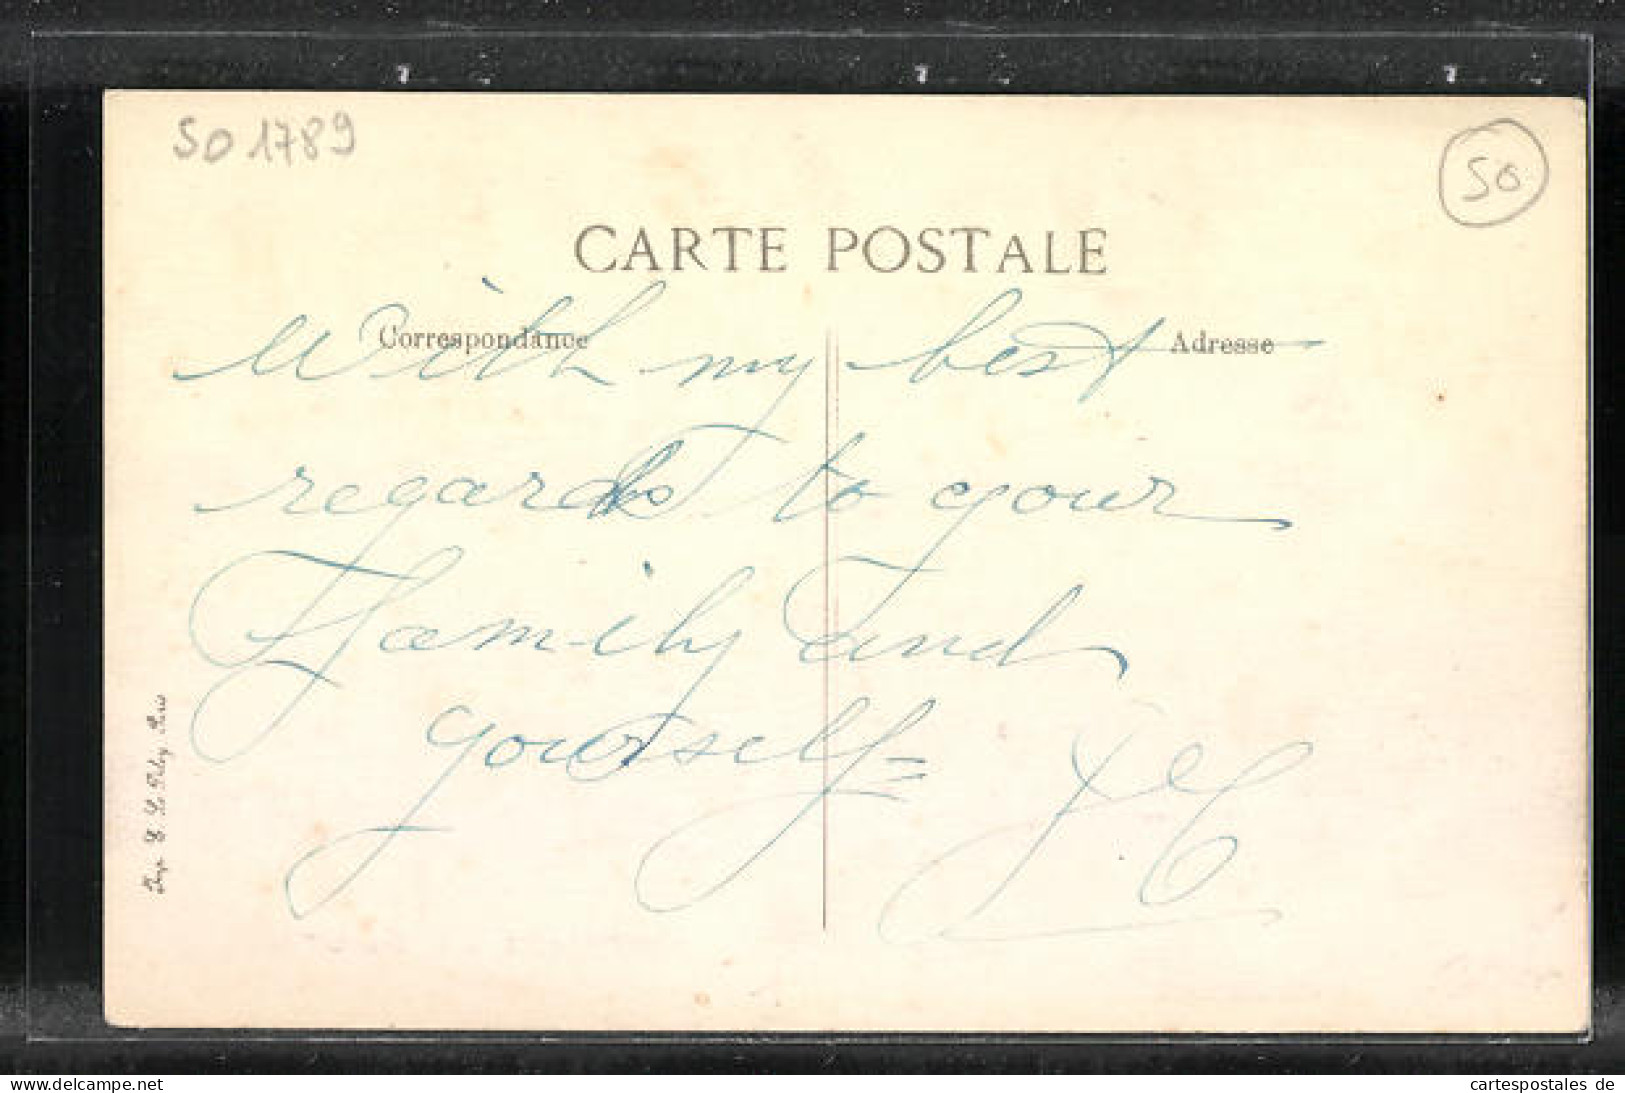 SO 1789
50
CARTE POSTALE
Correspondance
Adresse
With my best
regards to your
Family and
yourself =
Imp. E. Le Deley, Paris
delcampe.net
cartespostales de